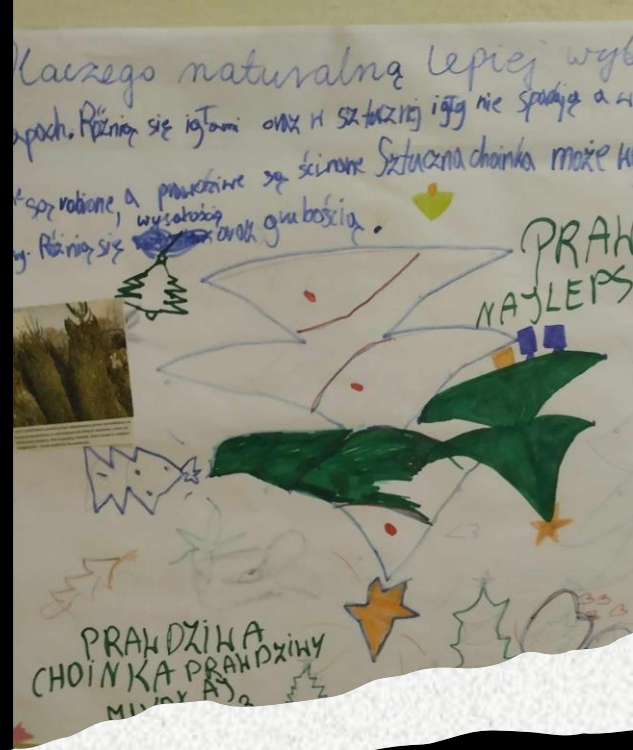 Dlaczego naturalną lepiej wyb
apach. Różnią się igłami oraz w sztucznej igły nie spadają a w
są robione, a prawdziwe są ścinane Sztuczna choinka może
Różnią się wysokością oraz grubością.
PRAW
NAJLEPS
PRAWDZIWA
CHOINKA PRAWDZIWY